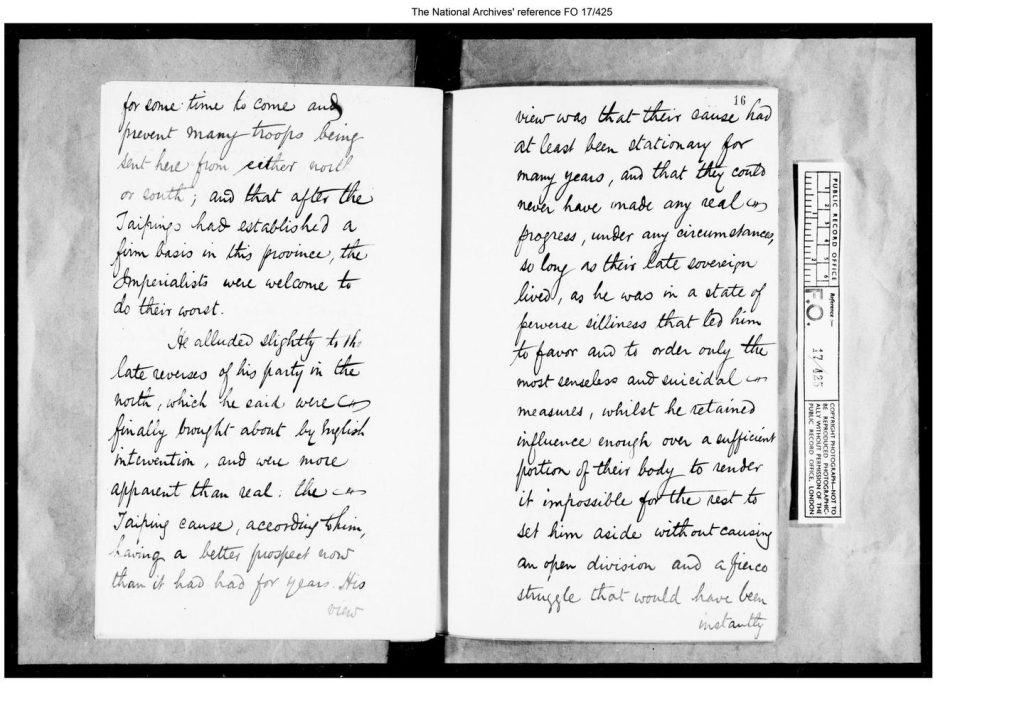 The National Archives' reference FO 17/425
for some time to come and
prevent many troops being
sent here from either north
or south; and that after the
Taipings had established a
firm basis in this province, the
Imperialists were welcome to
do their worst.
He alluded slightly to the
late reverses of his party in the
north, which he said were
finally brought about by English
intervention, and were more
apparent than real: the
Taiping cause, according to him,
having a better prospect now
than it had had for years. His
view
16
view was that their cause had
at least been stationary for
many years, and that they could
never have made any real
progress, under any circumstances,
so long as their late sovereign
lived, as he was in a state of
perverse silliness that led him
to favor and to order only the
most senseless and suicidal
measures, whilst he retained
influence enough over a sufficient
portion of their body to render
it impossible for the rest to
set him aside without causing
an open division and a fierce
struggle that would have been
instantly
PUBLIC RECORD OFFICE
1 2 3 4 5 6
1 2
Reference:-
F.O. 17/425
COPYRIGHT PHOTOGRAPH—NOT TO
BE REPRODUCED PHOTOGRAPHIC-
ALLY WITHOUT PERMISSION OF THE
PUBLIC RECORD OFFICE, LONDON